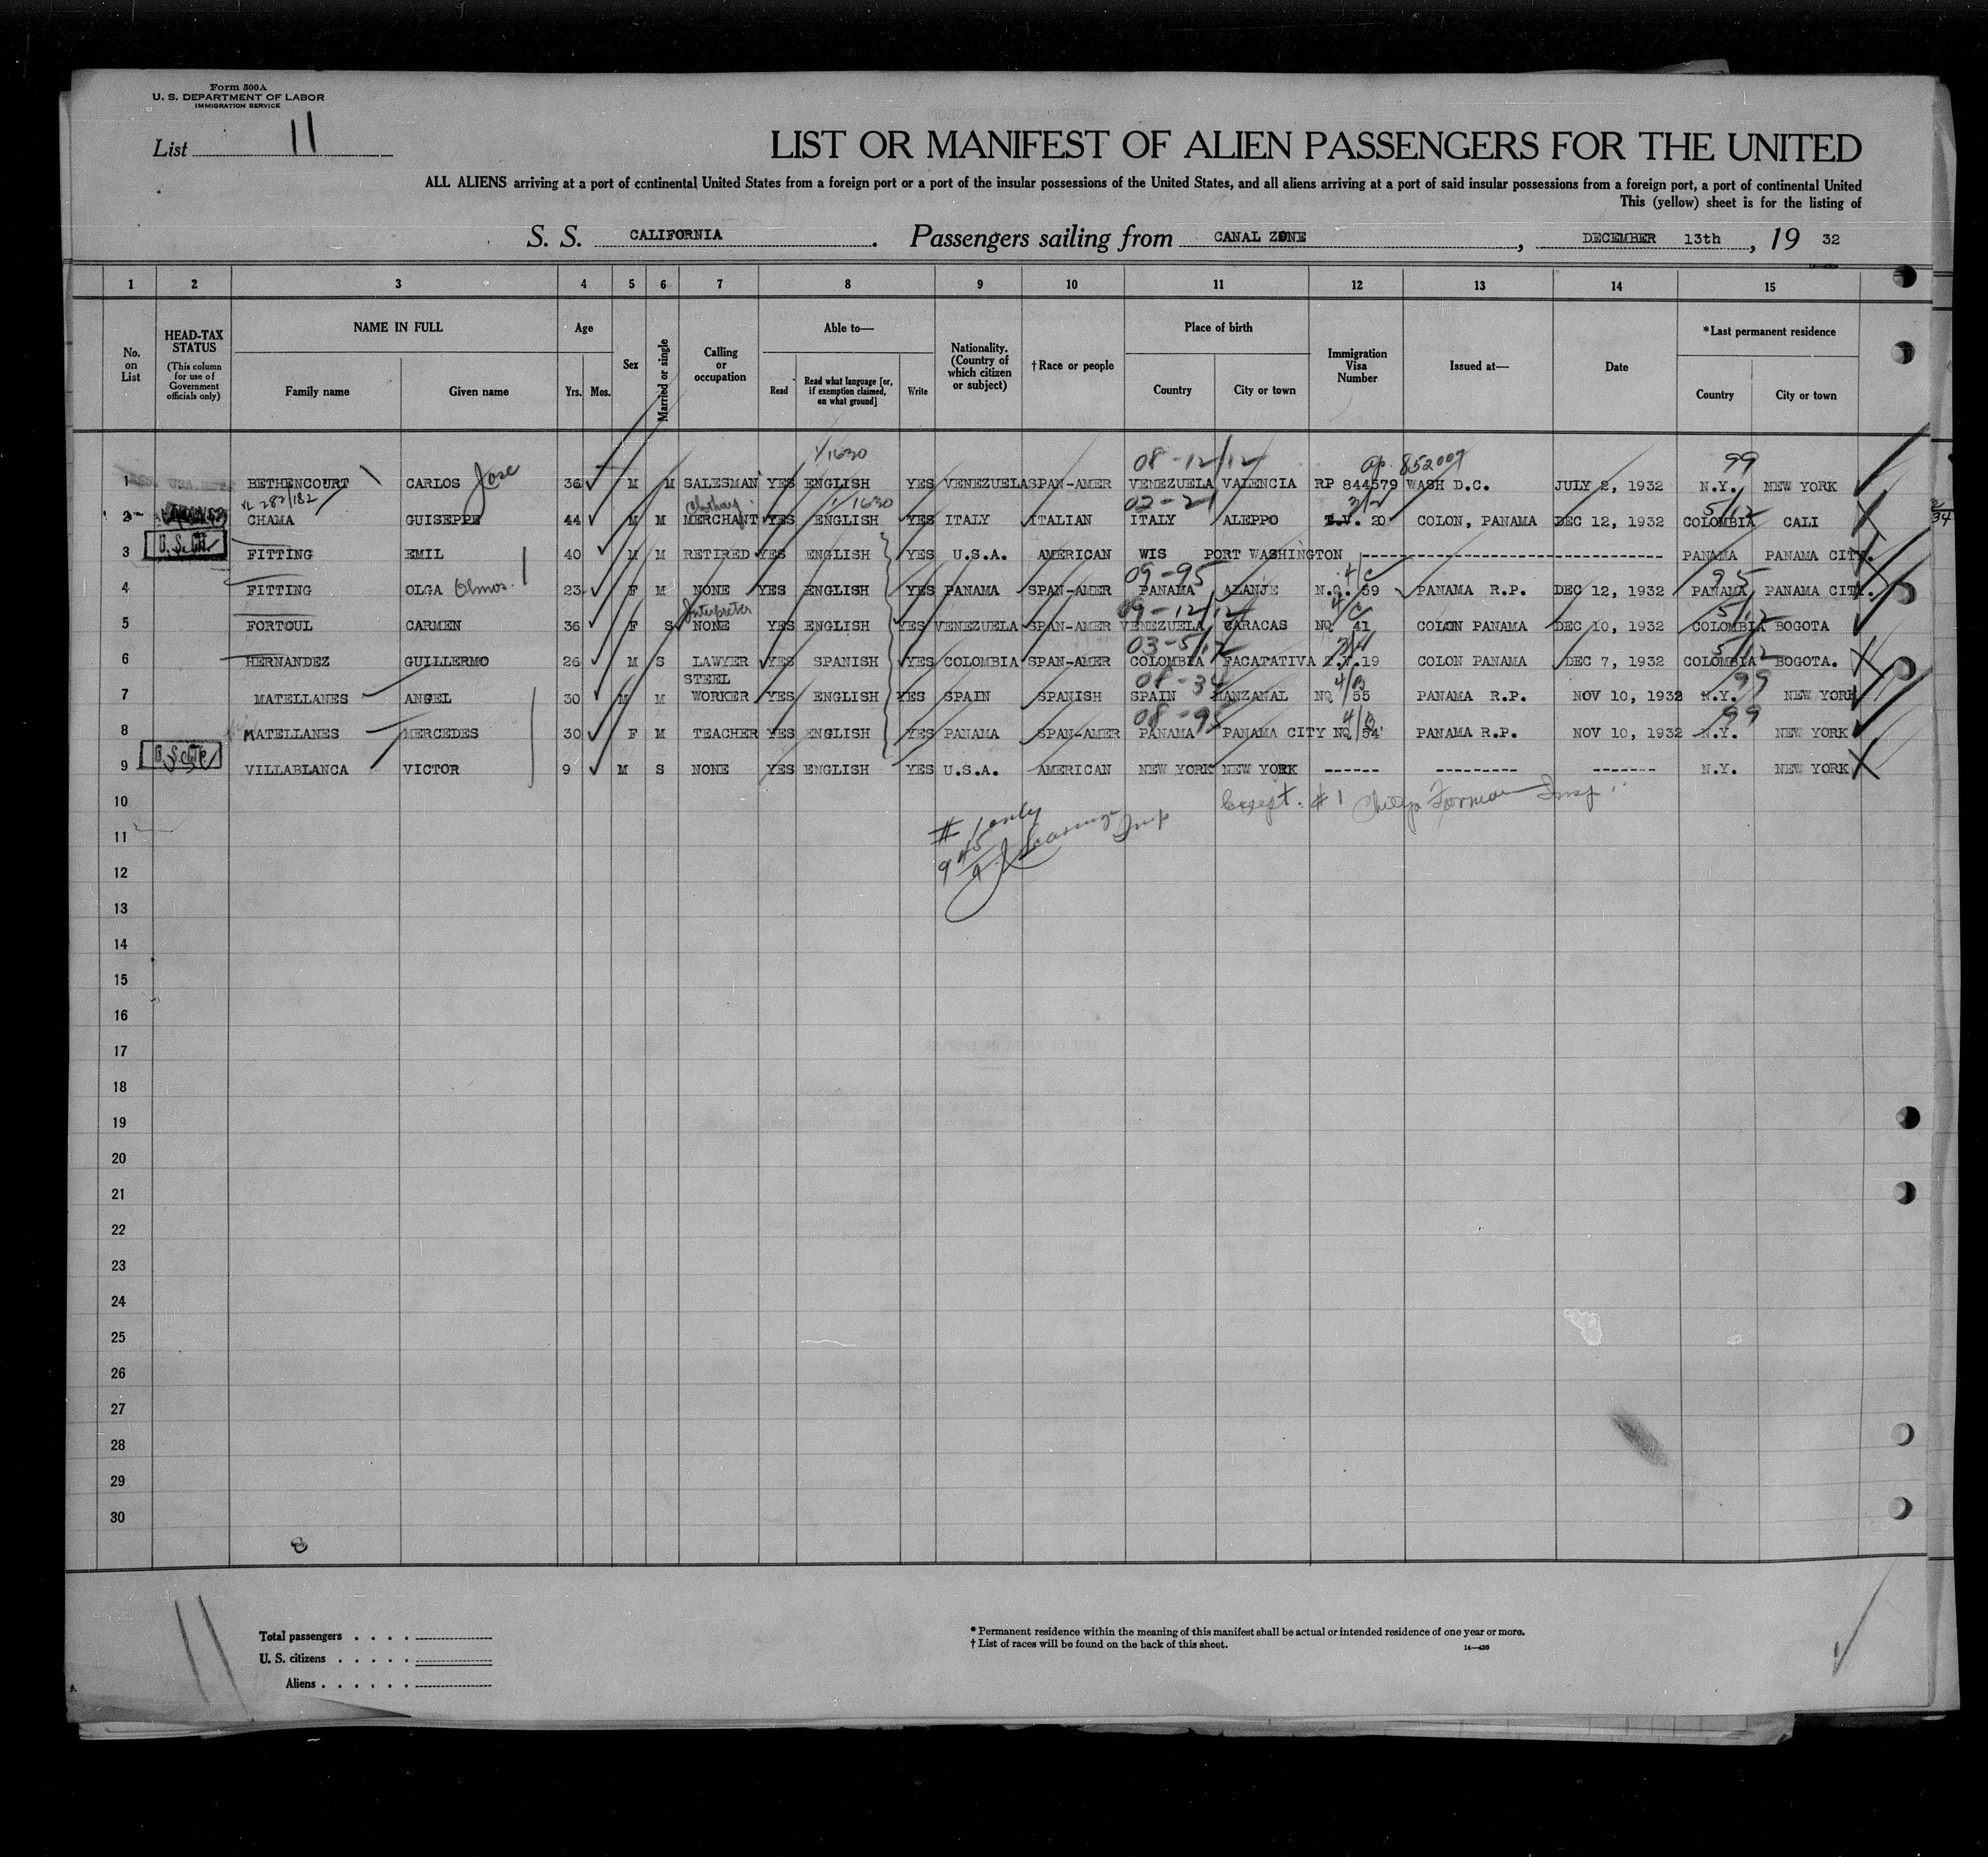 Form 500A
U. S. DEPARTMENT OF LABOR
IMMIGRATION SERVICE
List 11
LIST OR MANIFEST OF ALIEN PASSENGERS FOR THE UNITED
ALL ALIENS arriving at a port of continental United States from a foreign port or a port of the insular possessions of the United States, and all aliens arriving at a port of said insular possessions from a foreign port, a port of continental United
This (yellow) sheet is for the listing of
S. S. CALIFORNIA. Passengers sailing from CANAL ZONE, DECEMBER 13th, 19 32
1 2 3 4 5 6 7 8 9 10 11 12 13 14 15
No. on List
HEAD-TAX STATUS
(This column for use of Government officials only)
NAME IN FULL
Family name Given name
Age
Yrs. Mos.
Sex
Married or single
Calling or occupation
Able to—
Read
Read what language [or, if exemption claimed, on what ground]
Write
Nationality. (Country of which citizen or subject)
†Race or people
Place of birth
Country City or town
Immigration Visa Number
Issued at—
Date
*Last permanent residence
Country City or town
1/1630 08-12/12 852009 99
1 BETHENCOURT CARLOS Jose 36 M M SALESMAN YES ENGLISH YES VENEZUELA SPAN-AMER VENEZUELA VALENCIA RP 844579 WASH D.C. JULY 2, 1932 N.Y. NEW YORK
VL 287/182 Clothing 1/1630 02-21 3/2 5/12
2 CHAMA GUISEPPE 44 M M MERCHANT YES ENGLISH YES ITALY ITALIAN ITALY ALEPPO 20 COLON, PANAMA DEC 12, 1932 COLOMBIA CALI
2/34
3 U.S. FITTING EMIL 40 M M RETIRED YES ENGLISH YES U.S.A. AMERICAN WIS PORT WASHINGTON ------------------------------ PANAMA PANAMA CITY.
09-95 4/C 95
4 FITTING OLGA Olmos. 23 F M NONE YES ENGLISH YES PANAMA SPAN-AMER PANAMA ALANJE N.Q. 59 PANAMA R.P. DEC 12, 1932 PANAMA PANAMA CITY.
Interpreter 09-12/12 4/C 5/12
5 FORTOUL CARMEN 36 F S NONE YES ENGLISH YES VENEZUELA SPAN-AMER VENEZUELA CARACAS NQ 41 COLON PANAMA DEC 10, 1932 COLOMBIA BOGOTA
03-5/12 5/12
6 HERNANDEZ GUILLERMO 26 M S LAWYER YES SPANISH YES COLOMBIA SPAN-AMER COLOMBIA FACATATIVA 19 COLON PANAMA DEC 7, 1932 COLOMBIA BOGOTA.
08-34 4/B 99
7 MATELLANES ANGEL 30 M M STEEL WORKER YES ENGLISH YES SPAIN SPANISH SPAIN MANZANAL NQ 55 PANAMA R.P. NOV 10, 1932 N.Y. NEW YORK
08-95 4/B 99
8 MATELLANES MERCEDES 30 F M TEACHER YES ENGLISH YES PANAMA SPAN-AMER PANAMA PANAMA CITY NQ 54 PANAMA R.P. NOV 10, 1932 N.Y. NEW YORK
9 VILLABLANCA VICTOR 9 M S NONE YES ENGLISH YES U.S.A. AMERICAN NEW YORK NEW YORK ------ --------- ------- N.Y. NEW YORK
10
Except. # 1 Insp.
# 1 only
Insp
11
12
13
14
15
16
17
18
19
20
21
22
23
24
25
26
27
28
29
30
8
11
Total passengers . . . .
U. S. citizens . . . . .
Aliens . . . . . .
* Permanent residence within the meaning of this manifest shall be actual or intended residence of one year or more.
† List of races will be found on the back of this sheet.
14—430